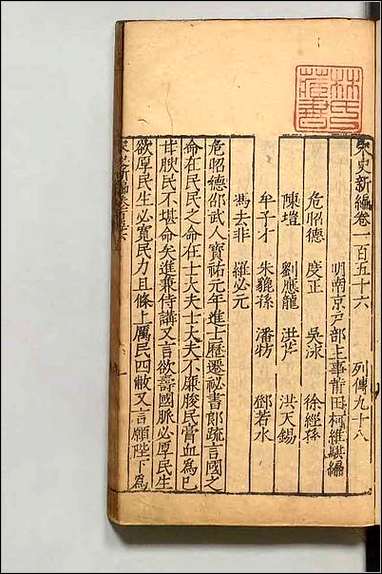 林氏藏書
宋史新編卷一百五十六　列傳九十八
明南京戸部主事莆田柯維騏編
危昭德　度正　吳泳　徐經孫
陳塏　劉應龍　洪芹　洪天錫
牟子才　朱貔孫　潘牥　鄧若水
馮去非　羅必元
危昭德邵武人寶祐元年進士歷遷祕書郎疏言國之
命在民民之命在士大夫士大夫不廉朘民膏血為己
甘腴民不堪命矣進兼侍講又言欲壽國脈必厚民生
欲厚民生必寬民力且條上厲民四敝又言願陛下為
宋史新編卷百五六
一